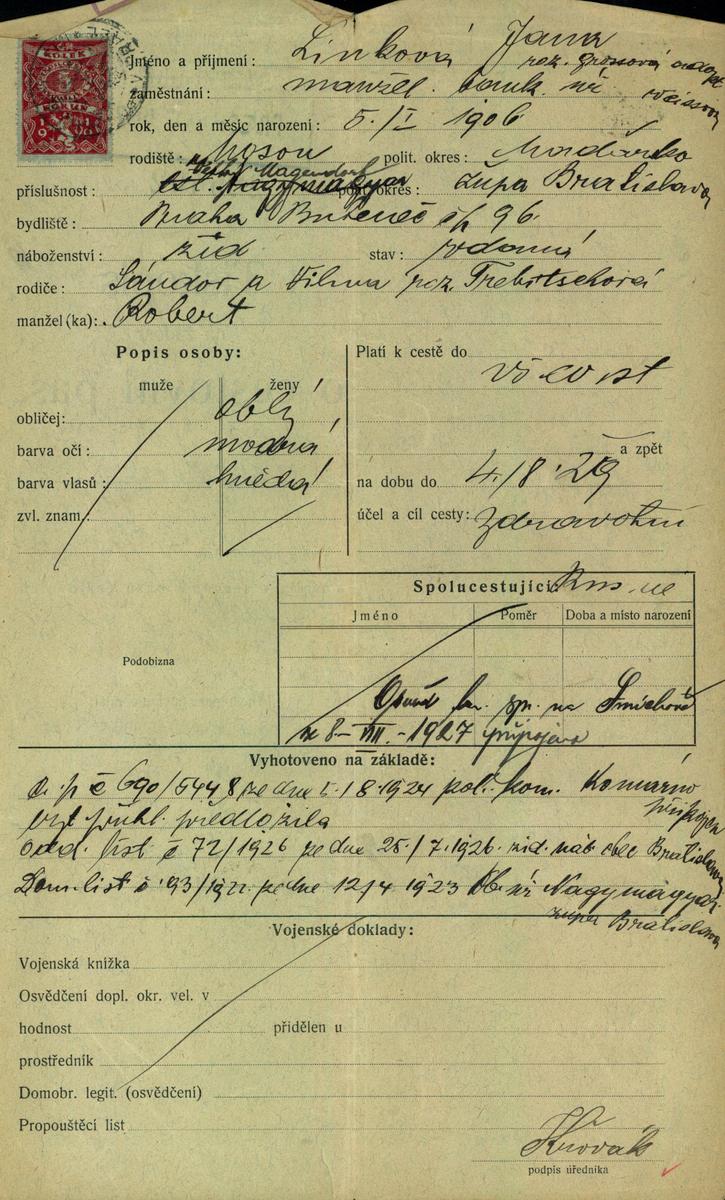 KOLEK
5
KORUN
1919
Jméno a příjmení: Linková Jana
roz. Grossová adopt
Weissova
zaměstnání: manžel. bank. úř
rok, den a měsíc narození: 5./I 1906
rodiště: Moson polit. okres: Maďarsko
Magendorf
příslušnost: Nagymagyar polit. okres: župa Bratislava
bydliště: Praha Bubeneč čp 96.
náboženství: žid stav: vdaná
rodiče: Sándor a Vilma roz. Trebitschová
manžel (ka): Robert
Popis osoby:
muže ženy
obličej: oblý
barva očí: modrá
barva vlasů: hnědá
zvl. znam.:
Platí k cestě do
vš. ev. st
a zpět
na dobu do 4./8. 29
účel a cíl cesty: zdravotní
Spolucestující:
Jméno Poměr Doba a místo narození
Podobizna
na Smíchově
ze 8-VIII.-1927 připojeno
Vyhotoveno na základě:
č 690/5448 ze dne 5./8.1924 pol. kom. Komárno
připojen
předložila
odd. list č 72/1926 ze dne 25./7.1926. žid. náb. obec Bratislava
Dom. list č 93/1922 ze dne 12/4 1923 Ob. úř Nagymagyar
župa Bratislava
Vojenské doklady:
Vojenská knížka
Osvědčení dopl. okr. vel. v
hodnost přidělen u
prostředník
Domobr. legit. (osvědčení)
Propouštěcí list
podpis úředníka